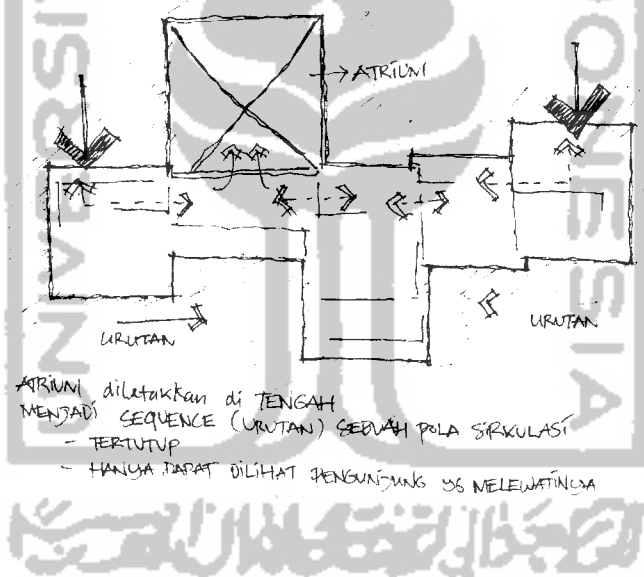 ATRIUM
URUTAN
URUTAN
ATRIUM diletakkan di TENGAH
MENJADI SEQUENCE (URUTAN) SEBUAH POLA SIRKULASI
- TERTUTUP
- HANYA DAPAT DILIHAT PENGUNJUNG YG MELEWATINYA